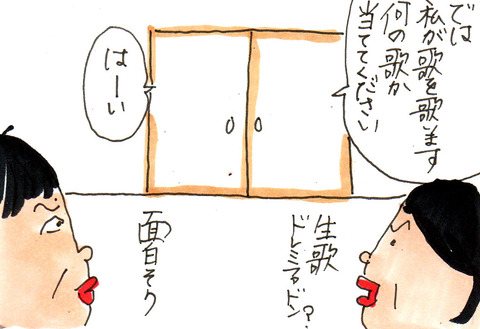 では
私が歌を歌ます
何の歌か
当ててください
はーい
生歌
ドレミファドン?
面白そり